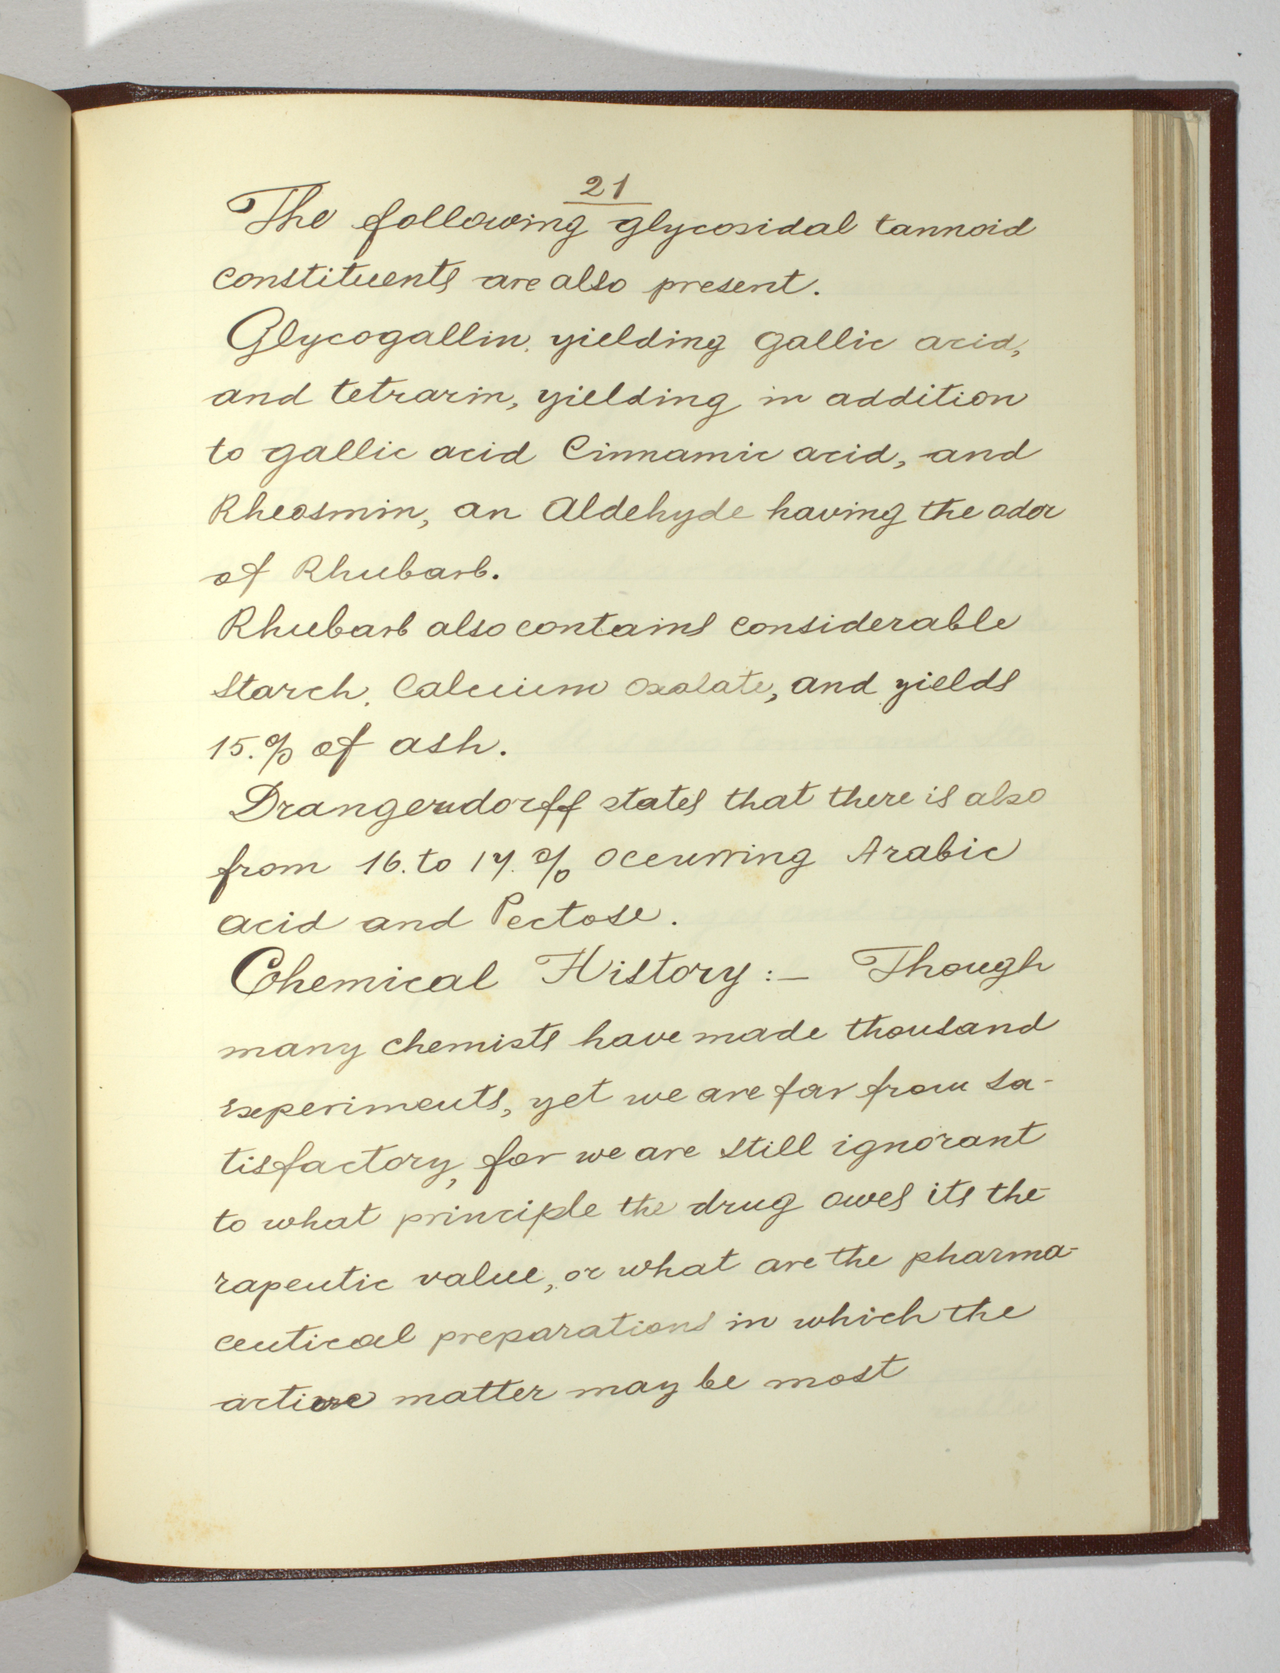 21
The following glycosidal tannoid
constituents are also present.
Glycogallin, yielding gallic acid,
and tetrarin, yielding in addition
to gallic acid Cinnamic acid, and
Rheosmin, an Aldehyde having the odor
of Rhubarb.
Rhubarb also contains considerable
starch, Calcium Oxalate, and yields
15.% of ash.
Drangendorff states that there is also
from 16. to 17.% occurring Arabic
acid and Pectose.
Chemical History :— Though
many chemists have made thousand
experiments, yet we are far from sa-
tisfactory, for we are still ignorant
to what principle the drug owes its the-
rapeutic value, or what are the pharma-
ceutical preparations in which the
active matter may be most